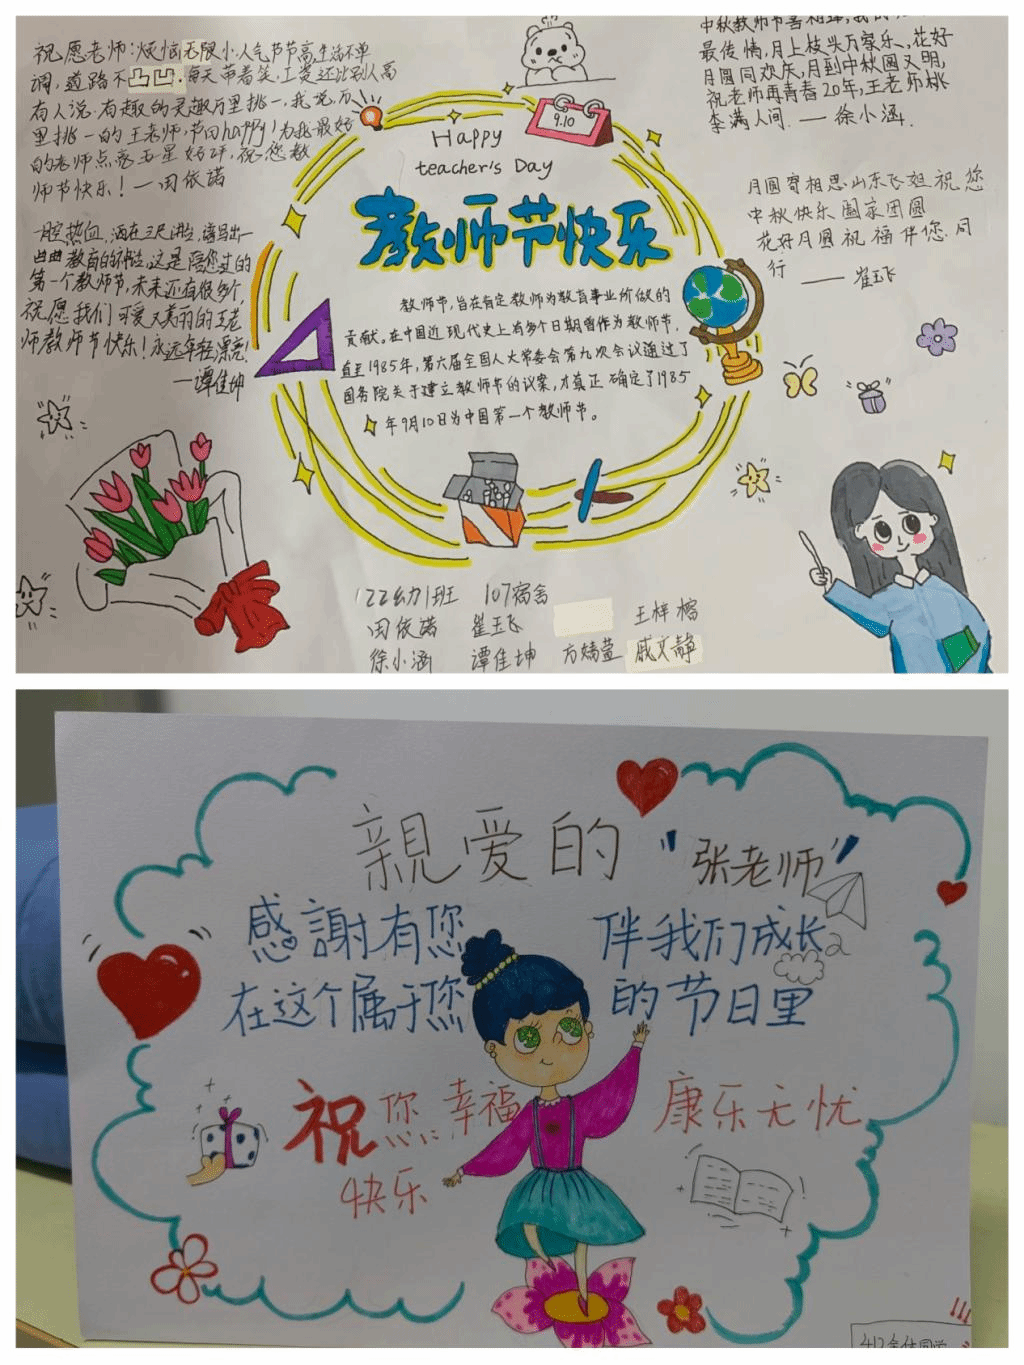 祝愿老师:烦恼无限小,人气节节高,生活不单
调,道路不凸凹.每天带着笑,工资还比别人高
有人说.有趣的灵魂万里挑一,我说,万
里挑一的王老师,节日happy!为我最好
的老师点亮五星好评,祝您教
师节快乐!—田依诺
一腔热血,洒在三尺讲台,谱写出一
曲曲教育的神话,这是陪您过的
第一个教师节,未来还有很多个,
祝愿我们可爱又美丽的王老
师教师节快乐!永远年轻漂亮!
—谭佳坤
9.10
Happy
teacher's Day
教师节快乐
教师节,旨在肯定教师为教育事业所做的
贡献。在中国近现代史上有多个日期曾作为教师节,
直至1985年,第六届全国人大常委会第九次会议通过了
国务院关于建立教师节的议案,才真正确定了1985
年9月10日为中国第一个教师节。
中秋教师节喜相逢,
最传情,月上枝头万家乐,花好
月圆同欢庆,月到中秋圆又明,
祝老师再青春20年,王老师桃
李满人间.—徐小涵.
月圆寄相思山东飞姐祝您
中秋快乐阖家团圆
花好月圆祝福伴您同
行
——崔玉飞
22幼1班 107宿舍
田依诺 崔玉飞 王梓榕
徐小涵 谭佳坤 方婧萱 戚文静
親爱的"张老师"
感謝有您 伴我们成长
在这个属于您 的节日里
祝您:幸福 康乐无忧
快乐
412全体同学